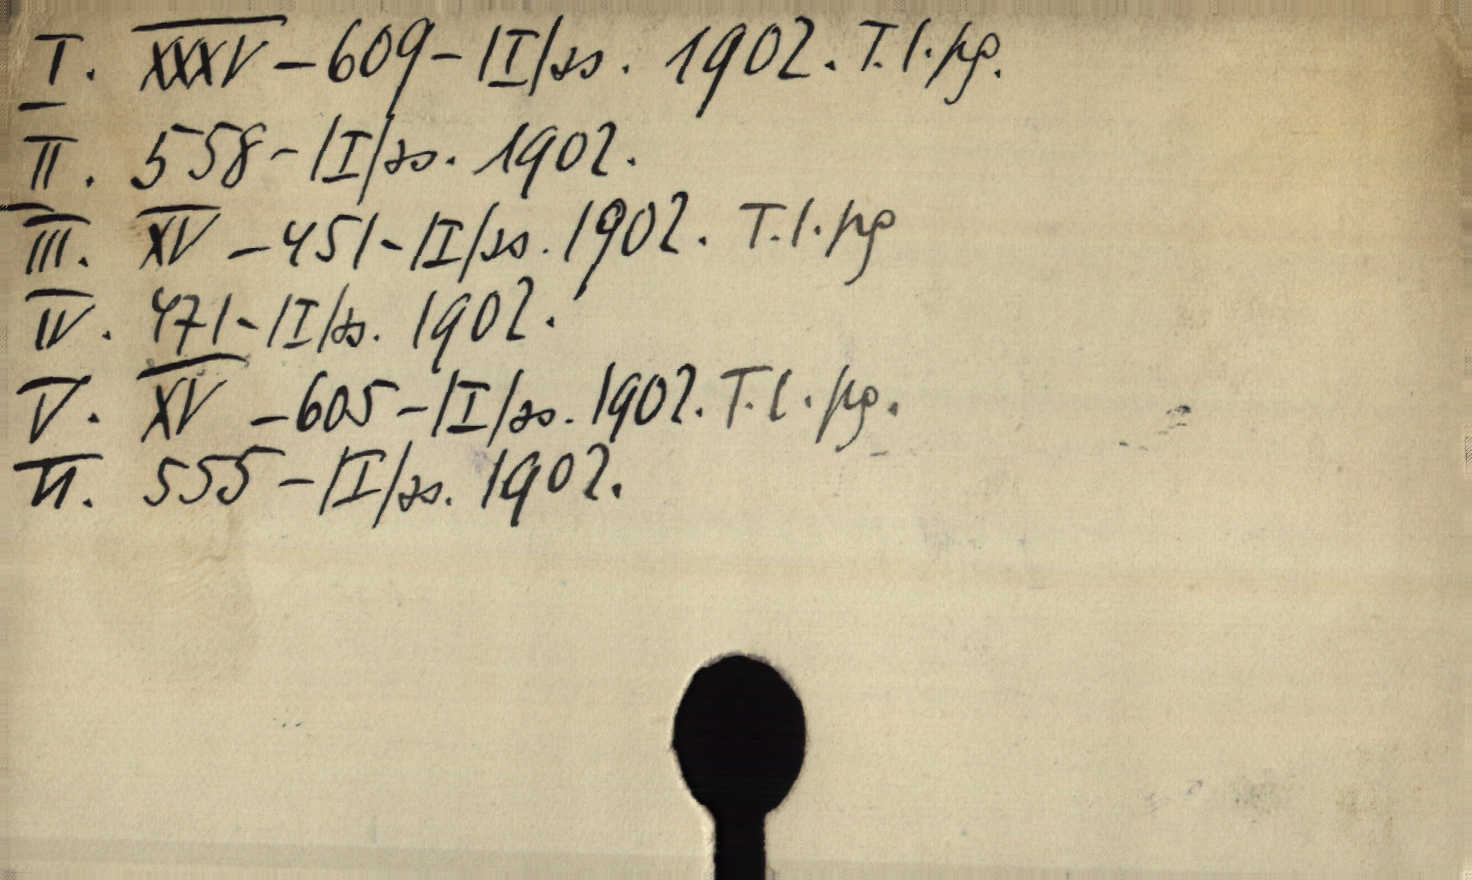 I. XXXV – 609 – II/ss. 1902. T.l.pg.
II. 558 – II/ss. 1902.
III. XV – 451 – II/ss. 1902. T.l.pg
IV. 471 – II/ss. 1902.
V. XV – 605 – II/ss. 1902. T.l.pg.
VI. 555 – II/ss. 1902.